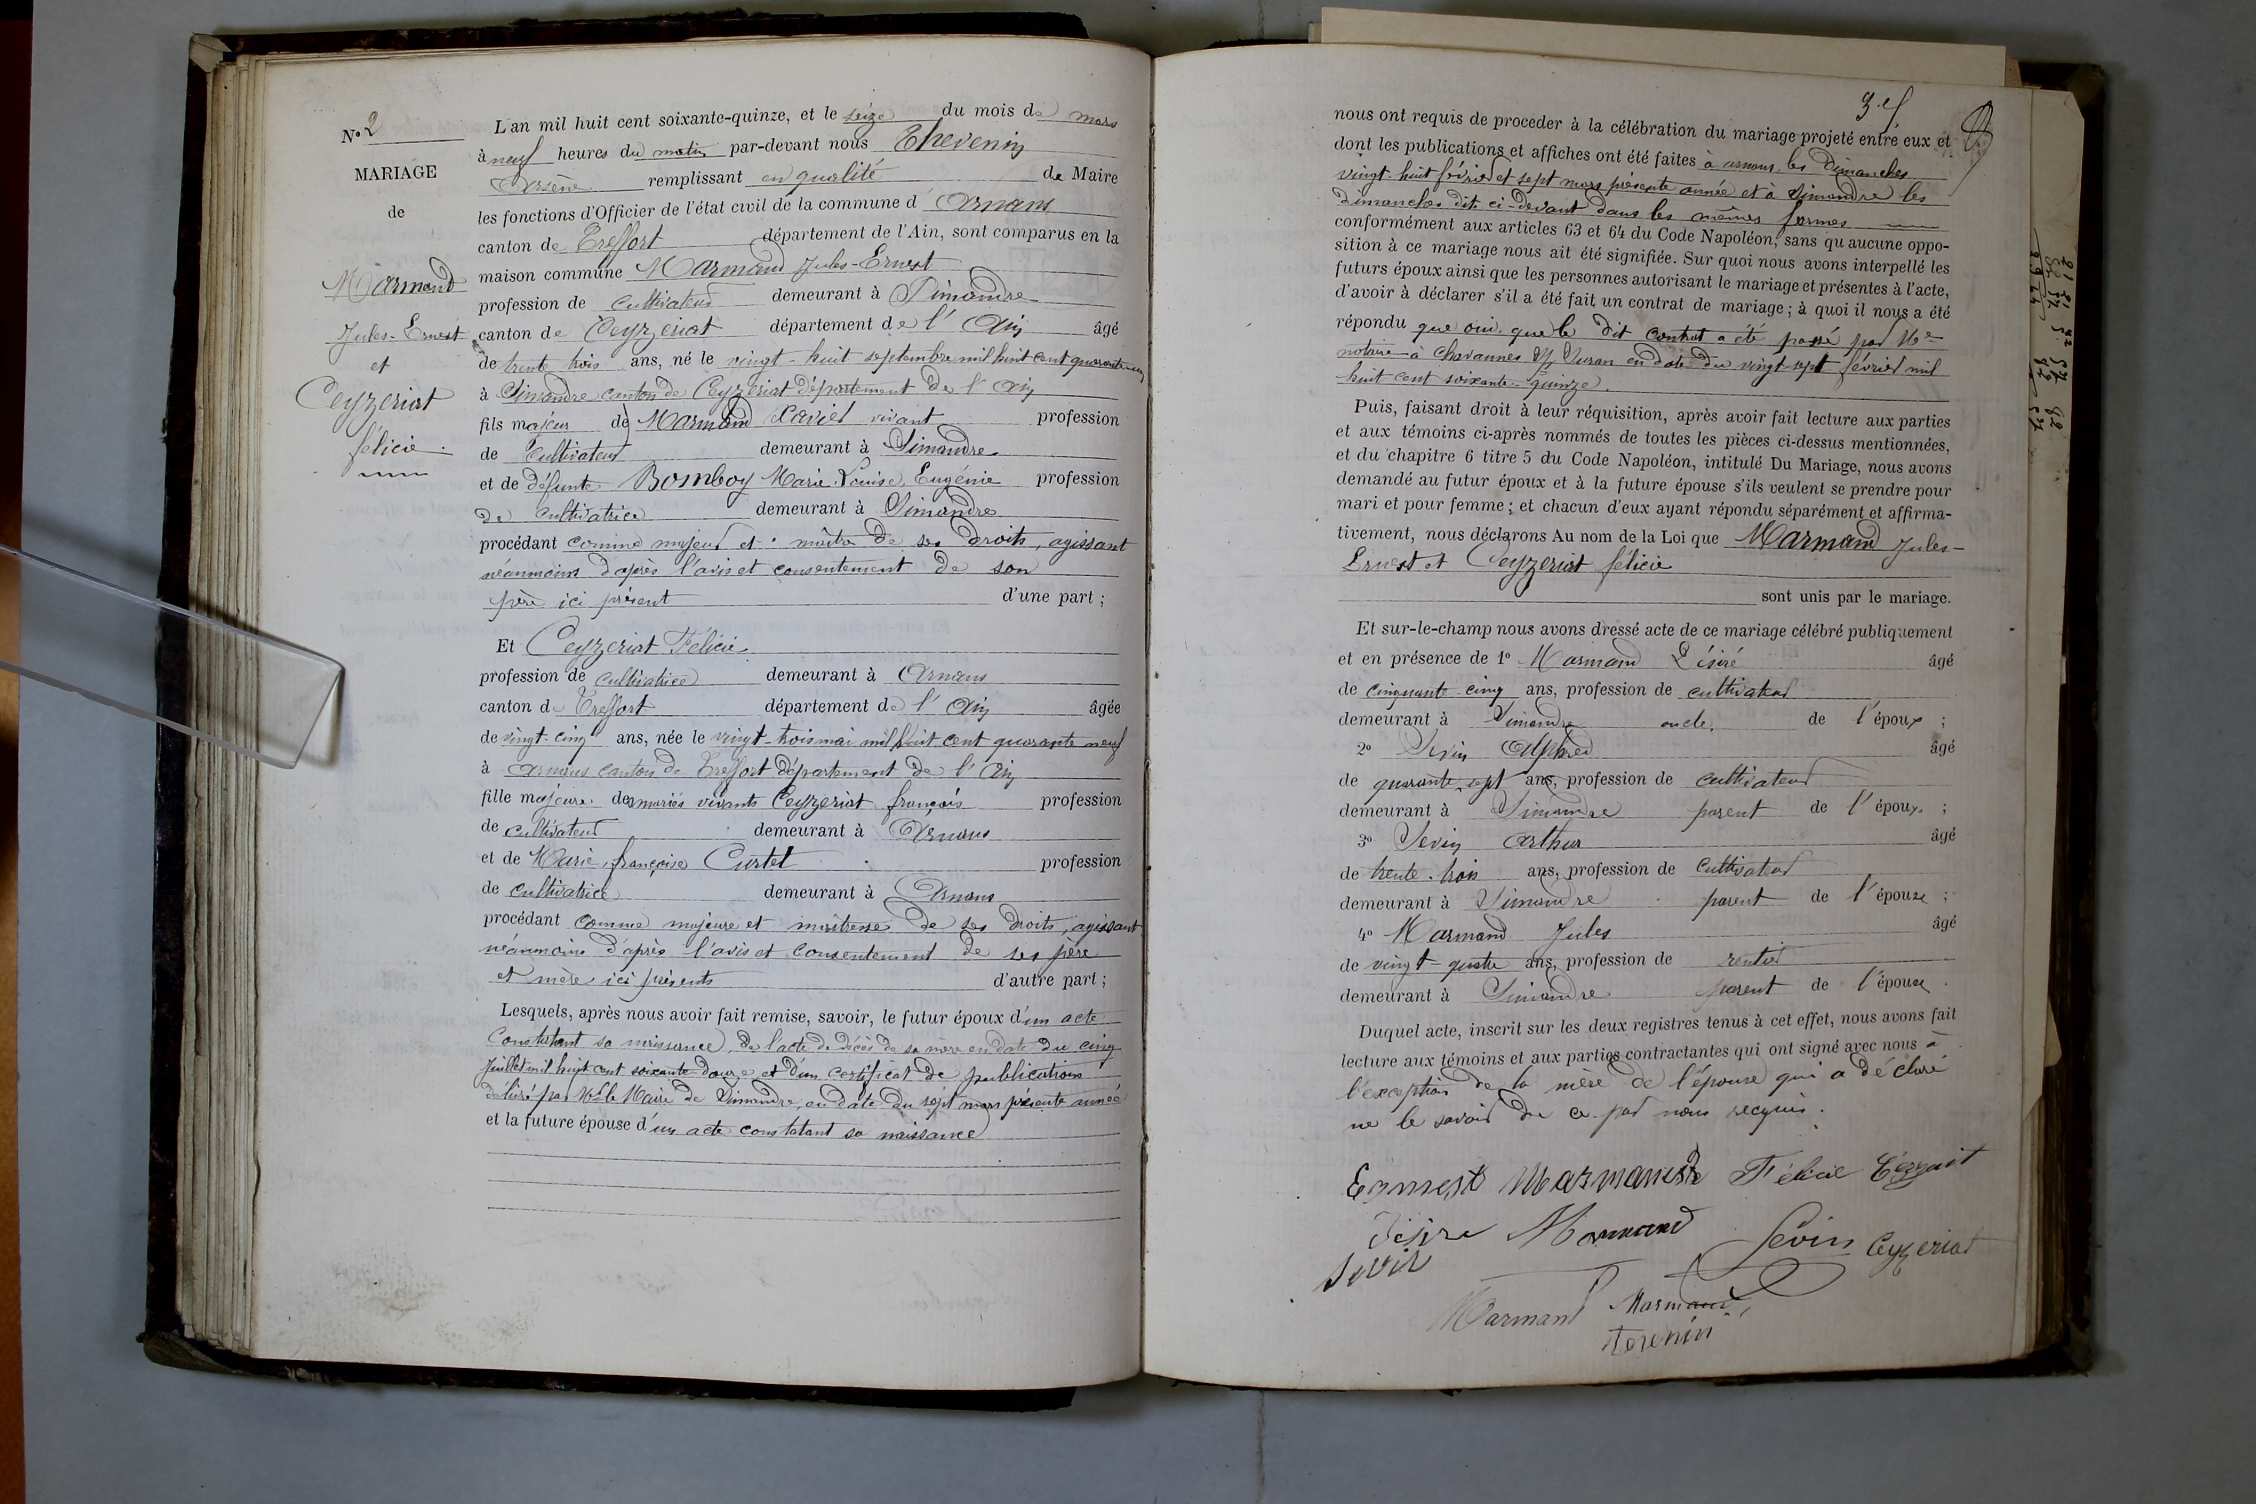 N° 2
MARIAGE
de
Marmand
Jules-Ernest
et
Ceyzeriat
félicie
L'an mil huit cent soixante-quinze, et le seize du mois de mars
à neuf heures du matin par-devant nous Thevenin
Arsène remplissant en qualité de Maire
les fonctions d'Officier de l'état civil de la commune d' Arnans
canton de Treffort département de l'Ain, sont comparus en la
maison commune Marmand Jules-Ernest
profession de cultivateur demeurant à Simandre
canton de Ceyzeriat département de l' Ain âgé
de trente trois ans, né le vingt-huit septembre mil huit cent quarante-un
à Simandre canton de Ceyzeriat département de l' Ain
fils majeur de Marmand Xavier vivant profession
de cultivateur demeurant à Simandre
et de défunte Bomboy Marie Louise Eugénie profession
de cultivatrice demeurant à Simandre
procédant comme majeur et maître de ses droits, agissant
néanmoins d'après l'avis et consentement de son
père ici présent d'une part ;
Et Ceyzeriat Félicie
profession de cultivatrice demeurant à Arnans
canton de Treffort département de l' Ain âgée
de vingt-cinq ans, née le vingt-trois mai mil huit cent quarante neuf
à Arnans canton de Treffort département de l' Ain
fille majeure des mariés vivants Ceyzeriat françois profession
de cultivateur demeurant à Arnans
et de Marie françoise Curtet profession
de cultivatrice demeurant à Arnans
procédant comme majeure et maîtresse de ses droits, agissant
néanmoins d'après l'avis et consentement de ses père
et mère ici présents d'autre part ;
Lesquels, après nous avoir fait remise, savoir, le futur époux d'un acte
constatant sa naissance, de l'acte de décès de sa mère en date du cinq
juillet mil huit cent soixante-douze et d'un certificat de publication
délivré par Mr le Maire de Simandre, en date du sept mars présente année
et la future épouse d'un acte constatant sa naissance
nous ont requis de proceder à la célébration du mariage projeté entre eux et
dont les publications et affiches ont été faites à arnans les dimanches
vingt-huit février et sept mars présente année et à Simandre les
dimanches dits ci-devant dans les mêmes formes
conformément aux articles 63 et 64 du Code Napoléon, sans qu'aucune oppo-
sition à ce mariage nous ait été signifiée. Sur quoi nous avons interpellé les
futurs époux ainsi que les personnes autorisant le mariage et présentes à l'acte,
d'avoir à déclarer s'il a été fait un contrat de mariage ; à quoi il nous a été
répondu que oui que le dit contrat a été passé par Me
notaire à Chavannes s/ Suran en date du vingt-sept février mil
huit cent soixante-quinze
Puis, faisant droit à leur réquisition, après avoir fait lecture aux parties
et aux témoins ci-après nommés de toutes les pièces ci-dessus mentionnées,
et du chapitre 6 titre 5 du Code Napoléon, intitulé Du Mariage, nous avons
demandé au futur époux et à la future épouse s'ils veulent se prendre pour
mari et pour femme ; et chacun d'eux ayant répondu séparément et affirma-
tivement, nous déclarons Au nom de la Loi que Marmand Jules-
Ernest et Ceyzeriat félicie
sont unis par le mariage.
Et sur-le-champ nous avons dressé acte de ce mariage célébré publiquement
et en présence de 1° Marmand Désiré âgé
de cinquante-cinq ans, profession de cultivateur
demeurant à Simandre oncle de l'époux ;
2° Sevin Alphred âgé
de quarante-sept ans, profession de cultivateur
demeurant à Simandre parent de l'époux ;
3° Sevin Arthur âgé
de trente-trois ans, profession de cultivateur
demeurant à Simandre parent de l'épouse ;
4° Marmand Jules âgé
de vingt-quatre ans, profession de rentier
demeurant à Simandre parent de l'épouse.
Duquel acte, inscrit sur les deux registres tenus à cet effet, nous avons fait
lecture aux témoins et aux parties contractantes qui ont signé avec nous à
l'exception de la mère de l'épouse qui a déclaré
ne le savoir de ce par nous requis.
Ernest Marmand Félicie
Désiré Marmand Sevin Ceyzeriat
Sevin
Marmand Marmand